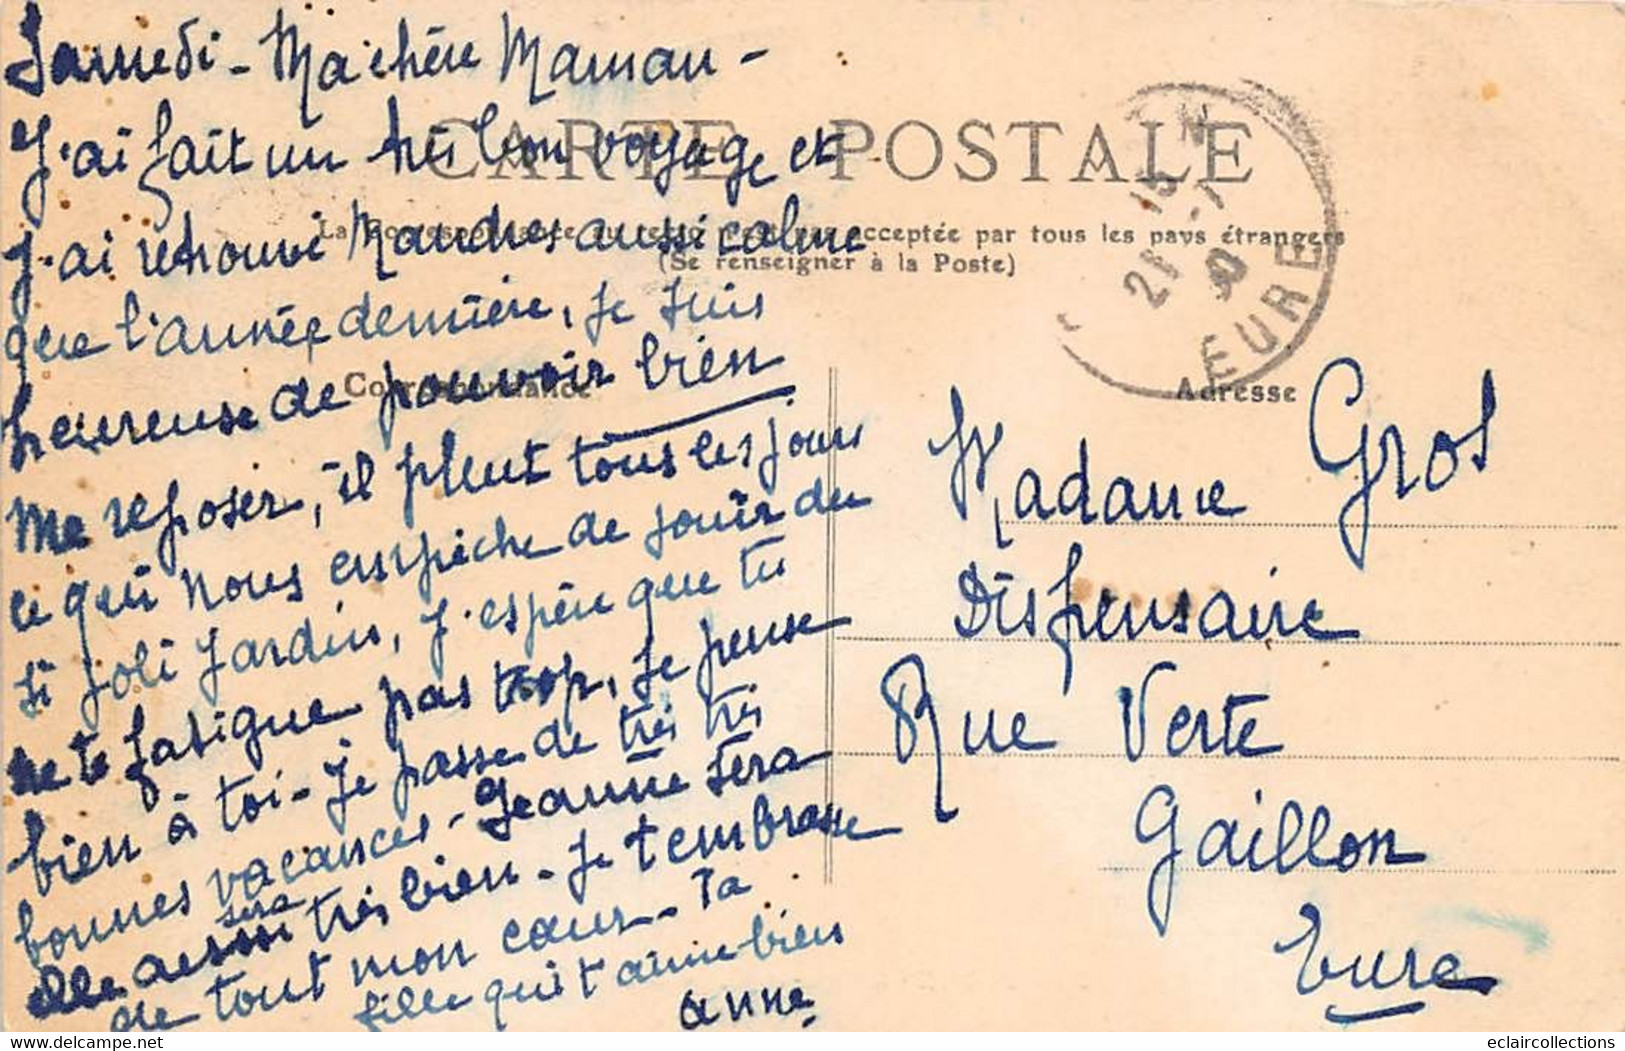 Samedi - Ma chère Maman -
J'ai fait un très bon voyage et
j'ai retrouvé Maudres aussi calme
que l'année dernière, je suis
heureuse de pouvoir bien
me reposer, il pleut tous les jours
ce qui nous empêche de jouir du
si joli jardin, j'espère que tu
ne te fatigue pas trop, je pense
bien à toi - Je passe de très très
bonnes vacances - Jeanne sera
sera
elle aussi très bien - Je t'embrasse
de tout mon cœur - Ta
fille qui t'aime bien
anne
CARTE POSTALE
La Correspondance au recto n'est pas acceptée par tous les pays étrangers
(Se renseigner à la Poste)
Correspondance
Adresse
15
21 -7
EURE
Madame Gros
Dispensaire
Rue Verte
Gaillon
Eure
eclaircollections